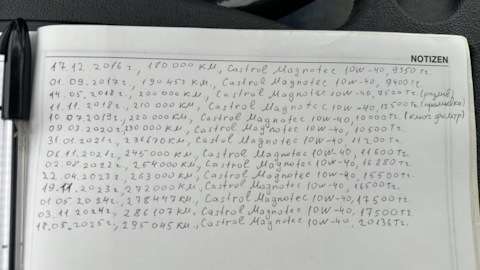 NOTIZEN
17.12.2016г., 180000 км., Castrol Magnotec 10W-40, 9350тг.
01.09.2017г., 190452 км., Castrol Magnotec 10W-40, 9400тг.
14.05.2018г., 200000 км., Castrol Magnotec 10W-40, 7500тг.
11.11.2018г., 210000 км., Castrol Magnotec 10W-40, 12500тг.
10.07.2019г., 220000 км., Castrol Magnotec 10W-40, 10000тг.
09.03.2020г., 230000 км., Castrol Magnotec 10W-40, 10500тг.
31.01.2021г., 236670км., Castrol Magnotec 10W-40, 11700тг.
06.11.2021г., 245000 км., Castrol Magnotec 10W-40, 11600тг.
02.07.2022г., 254000 км., Castrol Magnotec 10W-40, 16880тг.
22.04.2023г., 263000 км., Castrol Magnotec 10W-40, 15500тг.
19.11.2023г., 272000 км., Castrol Magnotec 10W-40, 16500тг.
01.05.2024г., 278447км., Castrol Magnotec 10W-40, 17500тг.
03.11.2024г., 286107км., Castrol Magnotec 10W-40, 17500тг.
18.05.2025г., 295045км., Castrol Magnotec 10W-40, 20136тг.